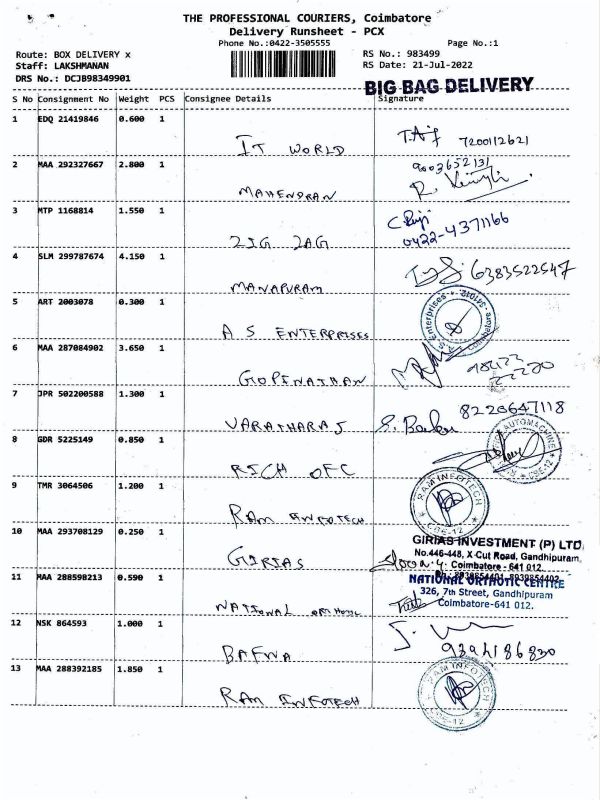 THE PROFESSIONAL COURIERS, Coimbatore
Delivery Runsheet - PCX
Phone No.:0422-3505555 Page No.:1
Route: BOX DELIVERY x RS No.: 983499
Staff: LAKSHMANAN RS Date: 21-Jul-2022
DRS No.: DCJB98349901
BIG BAG DELIVERY
S No Consignment No Weight PCS Consignee Details Signature
1 EDQ 21419846 0.600 1
IT WORLD 7200112621
2 MAA 292327667 2.800 1 9003652131
MAHENDRAN
3 MTP 1168814 1.550 1
ZIG ZAG 0422-4371166
4 SLM 299787674 4.150 1 6383522547
MANAPURAM
5 ART 2003078 0.300 1
A S ENTERPRISES
6 MAA 287084902 3.650 1
GOPINATHAN
7 JPR 502200588 1.300 1 8220647118
VARATHARAJ
8 GDR 5225149 0.850 1
RICH OFC
9 TMR 3064506 1.200 1 RAM INFOTECH
RAM INFOTECH CBE-12
10 MAA 293708129 0.250 1 GIRIAS INVESTMENT (P) LTD
No.446-448, X-Cut Road, Gandhipuram,
GIRIAS Coimbatore - 641 012.
11 MAA 288598213 0.590 1 NATIONAL ORTHOTIC CENTRE
326, 7th Street, Gandhipuram
NATIONAL Coimbatore-641 012.
12 NSK 864593 1.000 1
BAFNA
13 MAA 288392185 1.850 1 RAM INFOTECH
RAM INFOTECH CBE-12